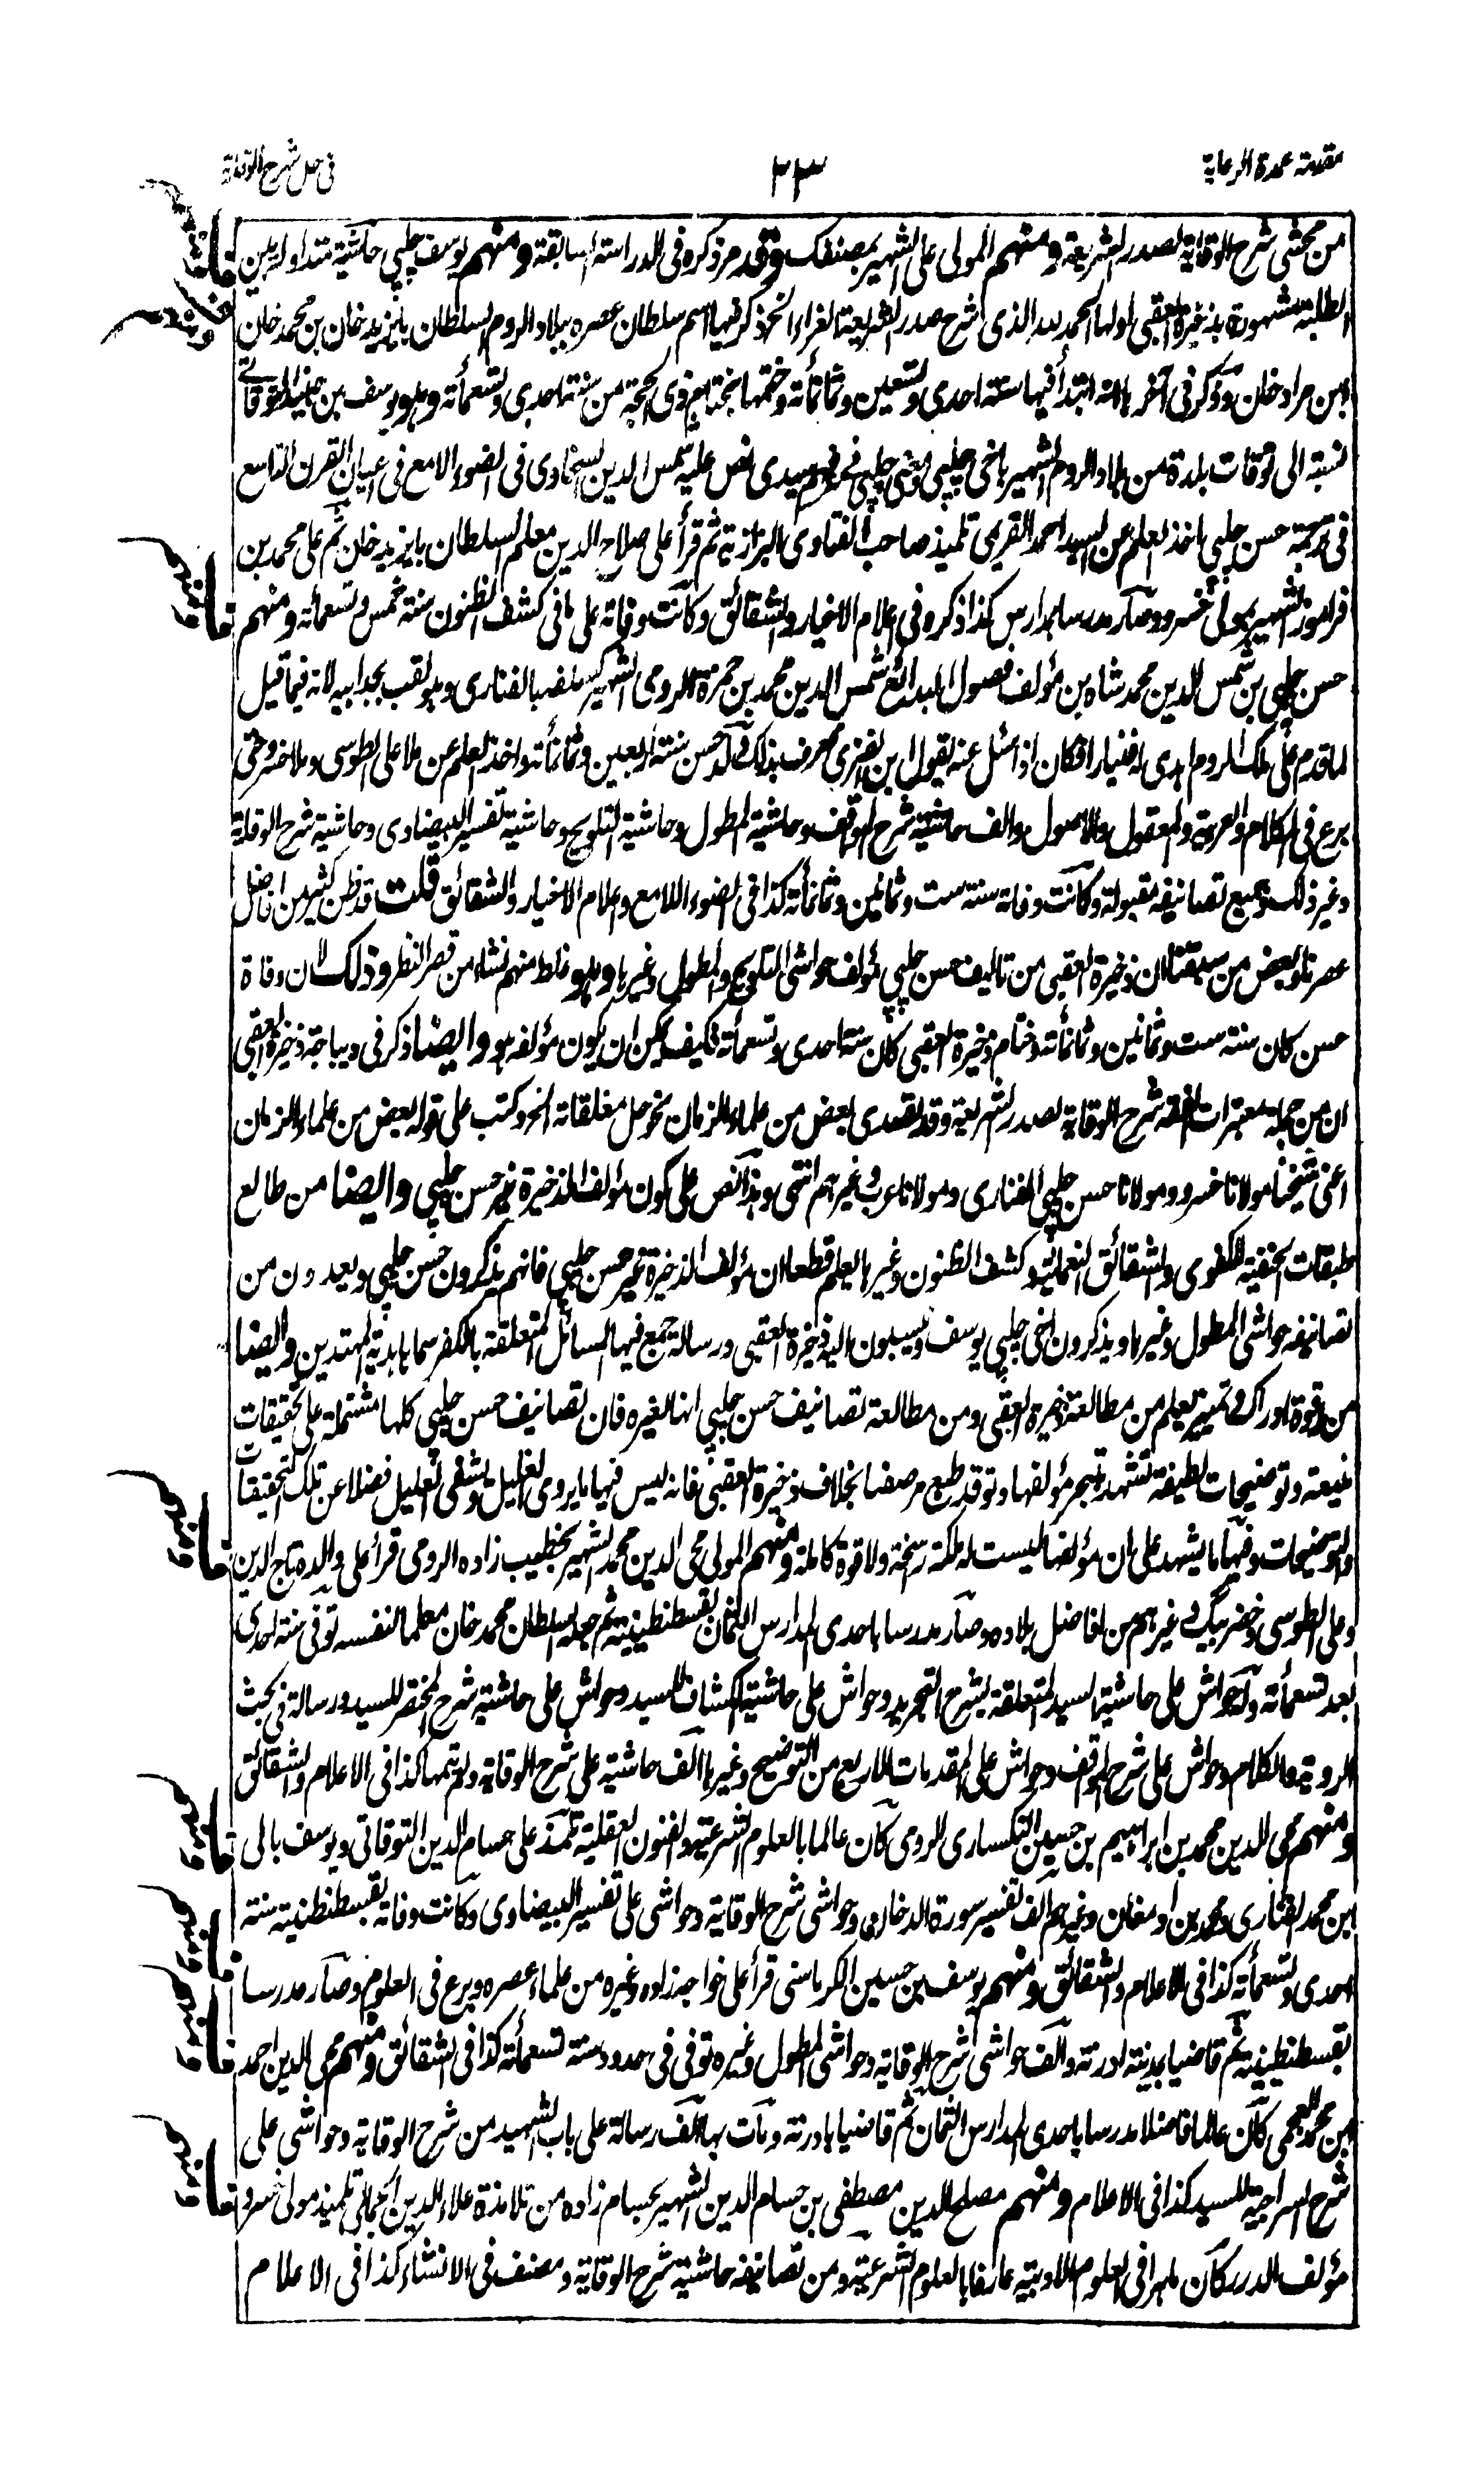 مقدمة عمدة الرعاية
٢٣
فى حل شرح الوقاية
من محشى شرح الوقاية لصدر الشريعة ومنهم المولى على الشهير بمصنفك وقد مر ذكره فى الدراسة السابقة ومنهم يوسف چلپي حاشيته متداولة بين
الطلبة مشهورة بذخيرة العقبى اولها الحمد لله الذى شرح صدر الشريعة الغراء الخ ذكر فيها اسم سلطان عصره ببلاد الروم السلطان بايزيد خان بن محمد خان
ابن مراد خان وذكر فى آخرها انه ابتدأ فيها سنة احدى وتسعين وثمانمأئة وختمها بختام ذى الحجة من سنة احدى وتسعمأئة وهو يوسف بن جنيد التوقاتي
نسبة الى توقات بلدة من بلاد الروم الشهير باخى چلپي نص عليه شمس الدين السخاوى فى الضوء اللامع فى اعيان القرن التاسع
فى ترجمة حسن چلپي اخذ العلم عن السيد احمد القريمى تلميذ صاحب الفتاوى البزازية ثم قرأ على صلاح الدين معلم السلطان بايزيد خان ثم على محمد بن
فراموز الشهير بمولى خسرو وصار مدرسا بمدارس كذا ذكروفى اعلام الاخيار والشقائق وكانت وفاته على ما فى كشف الظنون سنة خمس وتسعمأئة ومنهم
حسن چلپي بن شمس الدين محمد شاه بن مؤلف فصول البدائع شمس الدين محمد بن حمزة الرومى الشهير كسلفه بالفنارى وهو لقب لجد ابيه لانه فيما قيل
لما قدم على ملك الروم اهدى له فنيارا فكان اذا سئل عنه يقول ابن الفنرى فعرف بذلك ولد حسن سنة اربعين وثمانمأئة واخذ العلم عن ملا على الطوسى وملا خسرو حتى
برع فى الكلام والعربية والمعقول والاصول والف حاشية شرح المواقف وحاشية المطول وحاشية التلويح وحاشية تفسير البيضاوى وحاشية شرح الوقاية
وغير ذلك وجميع تصانيفه مقبولة وكانت وفاته سنة ست وثمانين وثمانمأئة كذا فى الضوء اللامع واعلام الاخيار والشقائق قلت قد ظن كثير من افاضل
عصرنا وبعض من سبقنا ان ذخيرة العقبى من تاليف حسن چلپي مؤلف حواشى التلويح والمطول وغيرها وهو غلط منهم نشأ من قصر النظر وذلك لان وفاة
حسن كان سنة ست وثمانين وثمانمأئة وختام ذخيرة العقبى كان سنة احدى وتسعمأئة فكيف يمكن ان يكون مؤلفه هو وايضا ذكر فى ديباجة ذخيرة العقبى
ان من جملة معتبرات الفقه شرح الوقاية لصدر الشريعة وقد تصدى بعض من علماء الزمان نحو حل مغلقاته الخ وكتب على قوله بعض من علماء الزمان
اعنى شيخنا مولانا خسرو ومولانا حسن چلپي الفنارى ومولانا عرب وغيرهم انتهى وهذا نص على كون مؤلف الذخيرة غير حسن چلپي وايضا من طالع
طبقات الحنفية للكفوى والشقائق النعمانية وكشف الظنون وغيرها يعلم قطعا ان مؤلف الذخيرة غير حسن چلپي فانهم يذكرون حسن چلپي ويعدون من
تصانيفه حواشى المطول وغيرها ويذكرون اخى چلپي يوسف وينسبون اليه ذخيرة العقبى ورسالة جمع فيها المسائل المتعلقة بالكفر سماها هدية المهتدين وايضا
من له قوة ادراك وتمييز يعلم من مطالعة ذخيرة العقبى ومن مطالعة تصانيف حسن چلپي انها لغيره فان تصانيف حسن چلپي كلها مشتملة على تحقيقات
منيعة وتوضيحات لطيفة تشهد بتبحر مؤلفها وتوقد طبع مرصفها بخلاف ذخيرة العقبى فانه ليس فيها ما يروى الغليل ويشفى العليل فضلا عن تلك التحقيقات
والتوضيحات وفيها ما يشهد على ان مؤلفها ليست له ملكة راسخة ولا قوة كاملة ومنهم المولى محى الدين محمد الشهير بخطيب زاده الرومى قرأ على والده تاج الدين
وعلى الطوسى وخضر بيگ وغيرهم من افاضل بلاده وصار مدرسا باحدى المدارس الثمان بقسطنطينية ثم جعله السلطان محمد خان معلما لنفسه توفى سنة احدى
بعد تسعمأئة وله حواش على حاشية السيد المتعلقة بشرح التجريد وحواش على حاشية الكشاف للسيد وحواش على حاشية شرح المختصر للسيد ورسالة فى بحث
الروية والكلام وحواش على شرح المواقف وحواش على المقدمات الاربع من التوضيح وغيرها الف حاشية على شرح الوقاية ولم يتمها كذا فى الاعلام والشقائق
ومنهم محى الدين محمد بن ابراهيم بن حسين النكسارى الرومى كان عالما بالعلوم الشرعية والفنون العقلية تلمذ على حسام الدين التوقاتى ويوسف بالى
ابن محمد الفنارى ومحمد بن ارمغان وغيرهم الف تفسير سورة الدخان وحواشى شرح الوقاية وحواشى على تفسير البيضاوى وكانت وفاته بقسطنطنية سنة
احدى وتسعمأئة كذا فى الاعلام والشقائق ومنهم يوسف بن حسين الكرماسنى قرأ على خواجه زاده وغيره من علماء عصره وبرع فى العلوم وصار مدرسا
بقسطنطينية ثم قاضيا بمدينة ادرنه والف حواشى شرح الوقاية وحواشى المطول وغيره توفى فى حدود سنة تسعمأئة كذا فى الشقائق ومنهم محى الدين احمد
ابن محمد العجمى كان عالما فاضلا مدرسا باحدى المدارس الثمان ثم قاضيا بادرنة ومات بها الف رسالة على باب الشهيد من شرح الوقاية وحواشى على
شرح السراجية للسيد كذا فى الاعلام ومنهم مصلح الدين مصطفى بن حسام الدين الشهير بحسام زاده من تلامذة علاء الدين الجمالى تلميذ مولى خسرو
مؤلف الدرر كان ماهرا فى العلوم الادبية عارفا بالعلوم الشرعية ومن تصانيفه حاشية شرح الوقاية ومصنف فى الانشاء كذا فى الاعلام